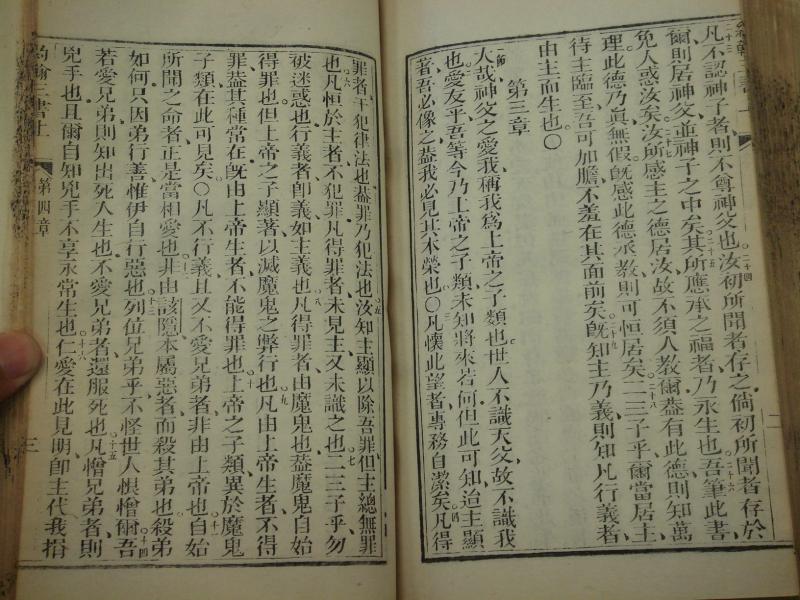 凡不認神子者則不尊神父也汝初所聞者存之倘初所聞者存於
爾則居神父並神子之中矣其所應承之福者乃永生也吾筆此書
免人惑汝矣汝所感主之德居汝故不須人教爾蓋有此德則知萬
理此德乃真無假既感此德丞教則可恒居矣二三子乎爾當居主
待主臨至吾可加膽不羞在其面前矣既知主乃義則知凡行義者
由主而生也〇
第三章
一節大哉神父之愛我稱我為上帝之子類也世人不識天父故不識我
也愛友乎吾等今乃上帝之子類未知將來若何但此可知迨主顯
著吾必像之蓋我必見其本榮也〇凡懷此望者專務自潔矣凡得
罪者干犯律法也蓋罪乃犯法也汝知主顯以除吾罪但主總無罪
也凡恒於主者不犯罪凡得罪者未見主又未識之也二三子乎勿
被迷惑也行義者即義如主義也凡得罪者由魔鬼也蓋魔鬼自始
得罪也但上帝之子顯著以滅魔鬼之弊行也凡由上帝生者不得
罪蓋其種常在既由上帝生者不能得罪也上帝之子類異於魔鬼
子類在此可見矣〇凡不行義且又不愛兄弟者非由上帝也自始
所聞之命者正是當相愛也非由該隱本屬惡者而殺其弟也殺弟
如何只因弟行善惟伊自行惡也列位兄弟乎不怪世人恨憎爾吾
若愛兄弟則知出死入生也不愛兄弟者還服死也凡憎兄弟者則
兇手也且爾自知兇手不享永常生也仁愛在此見明即主代我捐
約翰三書上 第四章 三